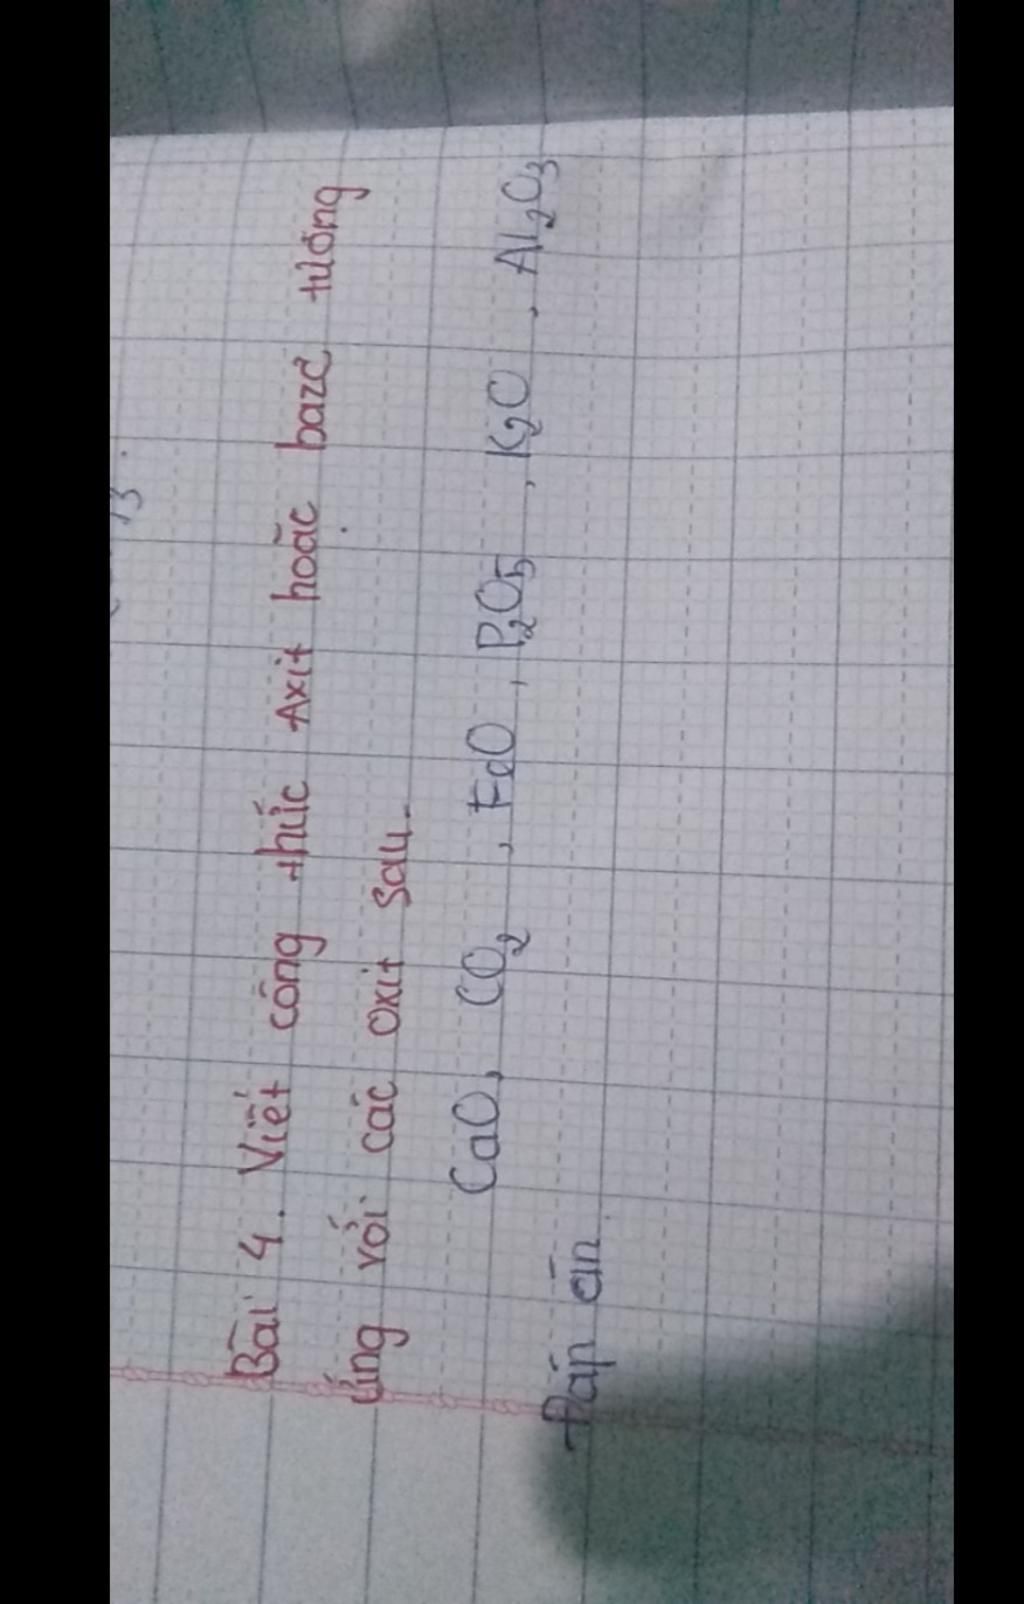 Bài 4. Viết công thức Axit hoặc bazơ tương
ứng với các oxit sau.
CaO, CO₂, FeO, P₂O₅, K₂O, Al₂O₃
Đáp án